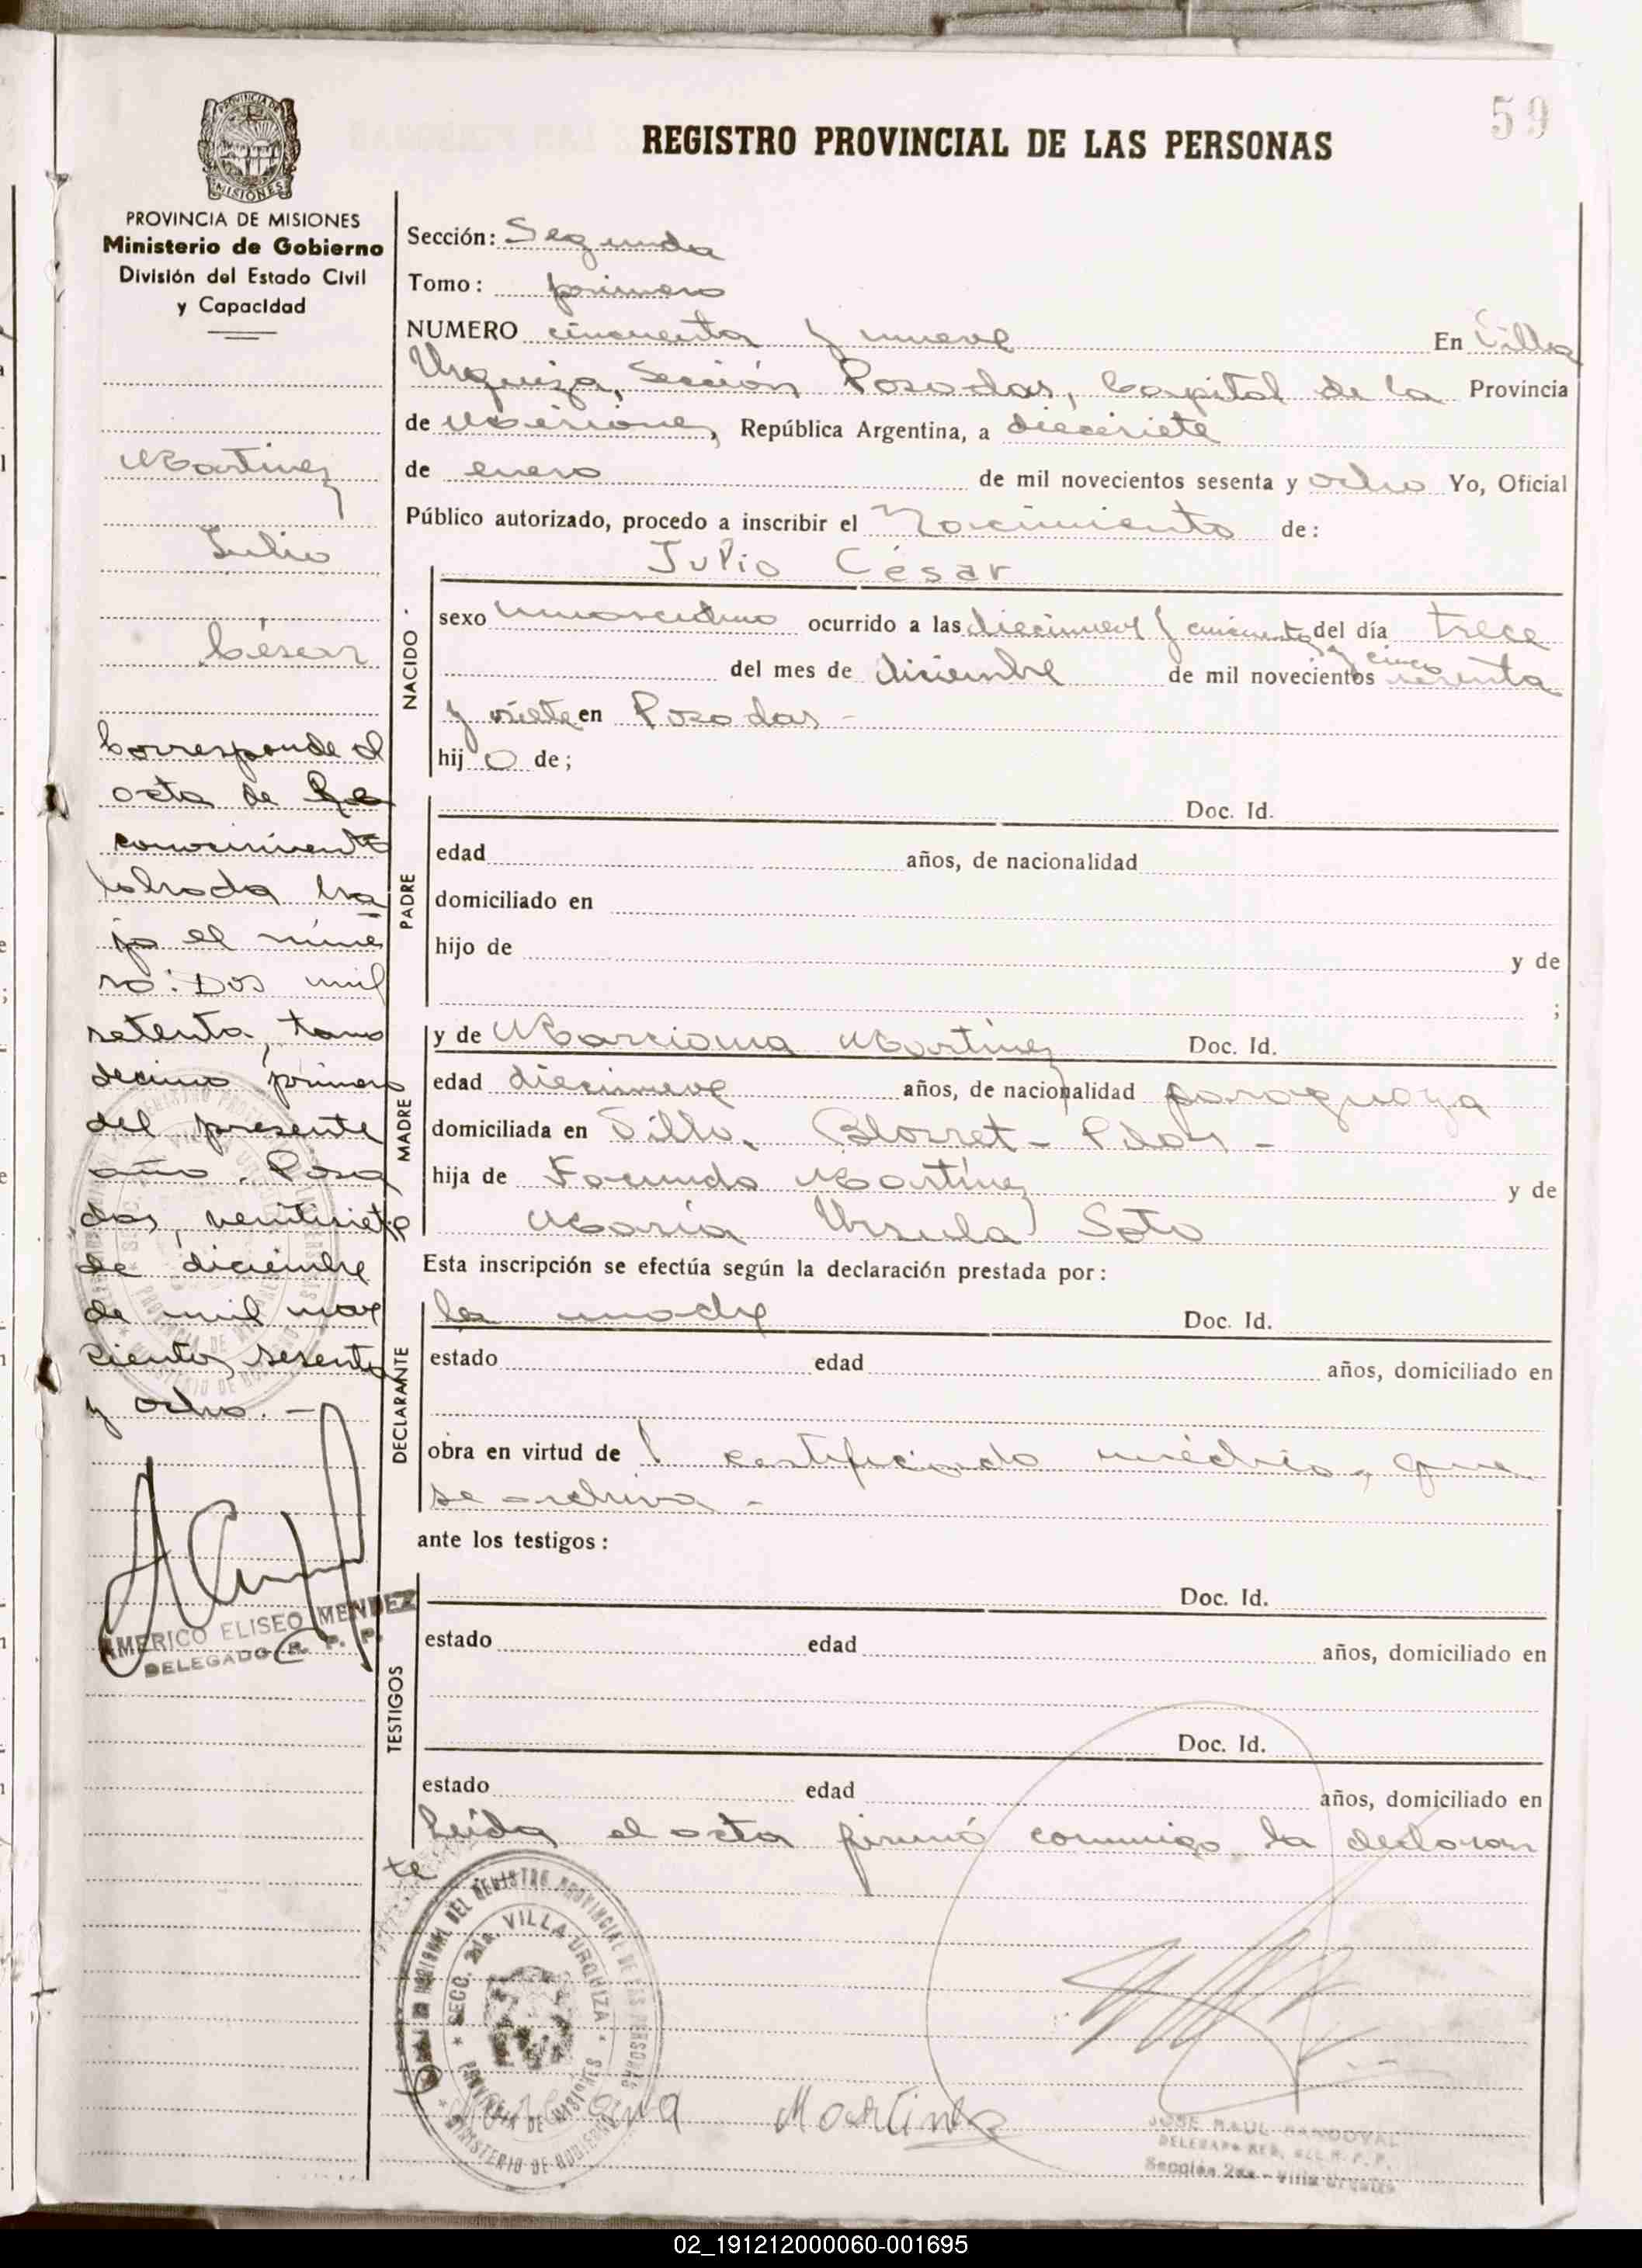 59
PROVINCIA DE
MISIONES
REGISTRO PROVINCIAL DE LAS PERSONAS
PROVINCIA DE MISIONES
Ministerio de Gobierno
División del Estado Civil
y Capacidad
Martinez
Julio
César
Corresponde al
acta de Re
conocimiento
labrada ba
jo el núme
ro: Dos mil
setenta, tomo
decimo primero
del presente
año. Posa
das, veintisiete
de diciembre
de mil nove
cientos sesenta
y ocho. -
AMERICO ELISEO MENDEZ
DELEGADO R. P. P.
Sección: Segunda
Tomo: primero
NUMERO cincuenta y nueve En Villa
Urquiza, Sección Posadas, Capital de la Provincia
de Misiones, República Argentina, a diecisiete
de enero de mil novecientos sesenta y ocho Yo, Oficial
Público autorizado, procedo a inscribir el Nacimiento de:
Julio César
NACIDO
sexo masculino ocurrido a las diecinueve y cincuenta y cinco del día trece
del mes de diciembre de mil novecientos sesenta
y siete en Posadas -
hijo de;
PADRE
Doc. Id.
edad años, de nacionalidad
domiciliado en
hijo de y de
;
MADRE
y de Marciana Martinez Doc. Id.
edad diecinueve años, de nacionalidad paraguaya
domiciliada en Villa Blosset - Pdas -
hija de Facundo Martínez y de
María Ursula Soto
Esta inscripción se efectúa según la declaración prestada por:
DECLARANTE
la madre Doc. Id.
estado edad años, domiciliado en
obra en virtud de l certificado médico, que
se archiva -
ante los testigos:
TESTIGOS
Doc. Id.
estado edad años, domiciliado en
Doc. Id.
estado edad años, domiciliado en
Leída el acta firmó conmigo la declaran
te
REGIONAL DEL REGISTRO PROVINCIAL DE LAS PERSONAS
SECC. 2da. VILLA URQUIZA
PROVINCIA DE MISIONES
MINISTERIO DE GOBIERNO
Marciana Martinez
JOSE RAUL SANDOVAL
Sección 2da - Villa Urquiza
02_191212000060-001695